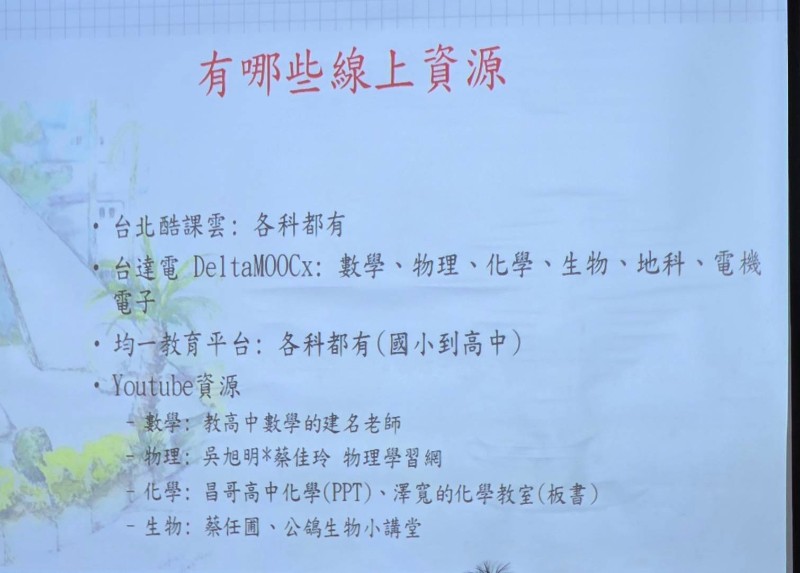 有哪些線上資源
• 台北酷課雲: 各科都有
• 台達電 DeltaMOOCx: 數學、物理、化學、生物、地科、電機
電子
• 均一教育平台: 各科都有(國小到高中)
• Youtube資源
- 數學: 教高中數學的建名老師
- 物理: 吳旭明*蔡佳玲 物理學習網
- 化學: 昌哥高中化學(PPT)、澤寬的化學教室(板書)
- 生物: 蔡任圃、公鴿生物小講堂